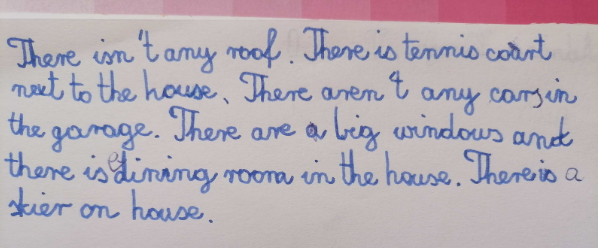 There isn't any roof. There is tennis court
next to the house. There aren't any cars in
the garage. There are a big windows and
there is a dining room in the house. There is a
skier on house.